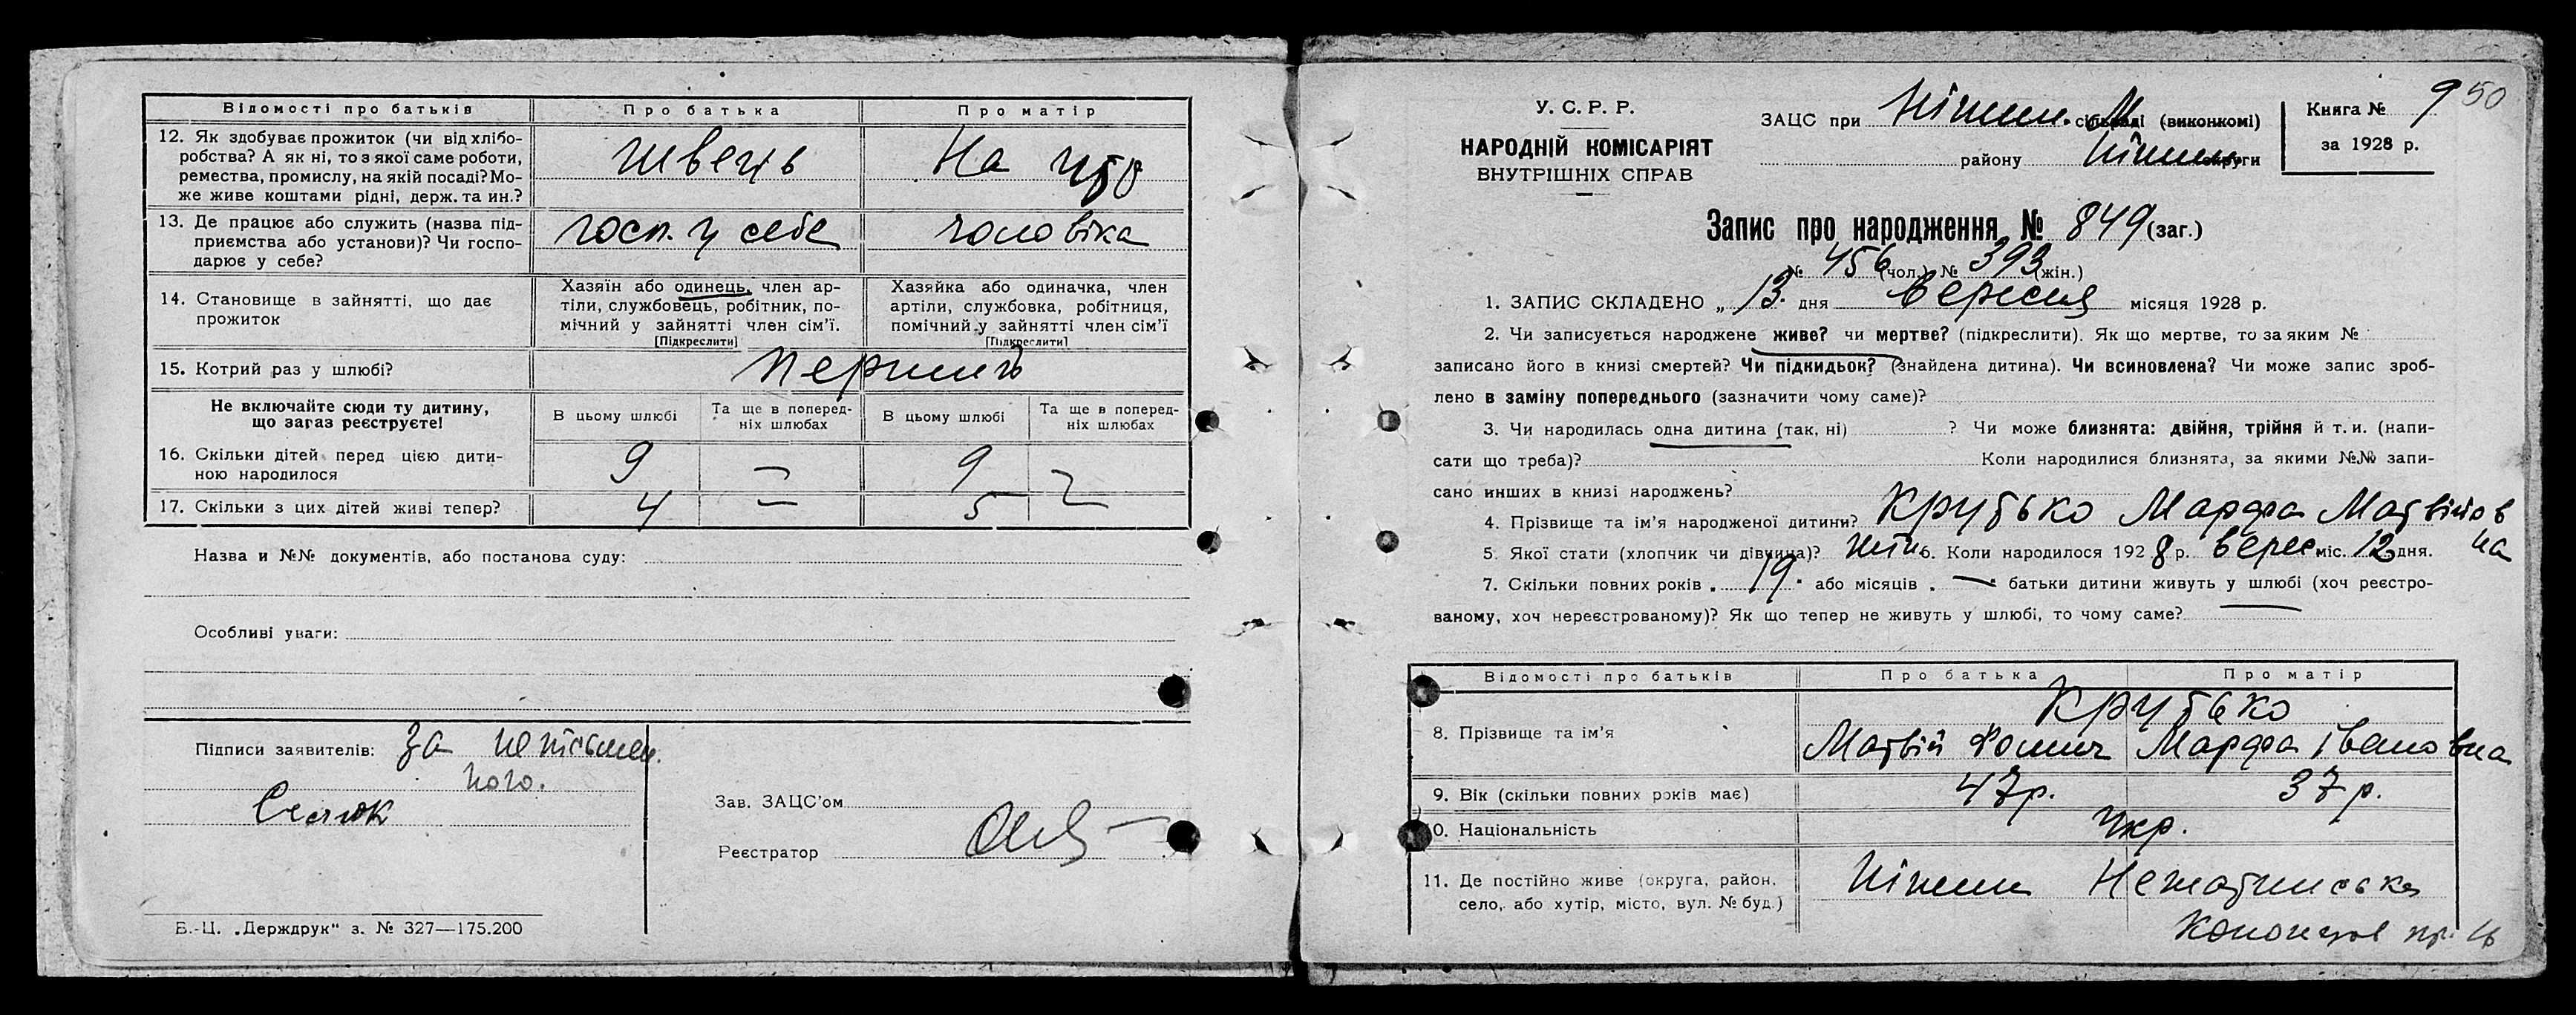 Відомості про батьків Про батька Про матір
12. Як здобуває прожиток (чи від хлібо-
робства? А як ні, то з якої саме роботи,
ремества, промислу, на якій посаді? Мо-
же живе коштами рідні, держ. та ин.?
швець На утр
13. Де працює або служить (назва під-
приємства або установи)? Чи госпо-
дарює у себе?
госп. у себе чоловіка
14. Становище в зайнятті, що дає
прожиток
Хазяїн або одинець, член ар-
тіли, службовець, робітник, по-
мічний у зайнятті член сім'ї.
[Підкреслити]
Хазяйка або одиначка, член
артіли, службовка, робітниця,
помічний у зайнятті член сім'ї
[Підкреслити]
15. Котрий раз у шлюбі? перший
Не включайте сюди ту дитину,
що загаз реєструєте!
В цьому шлюбі
Та ще в поперед-
ніх шлюбах
В цьому шлюбі
Та ще в поперед-
ніх шлюбах
16. Скільки дітей перед цією дити-
ною народилося
9 — 9 —
17. Скільки з цих дітей живі тепер? 4 — 5 —
Назва и №№ документів, або постанова суду:
Особливі уваги:
Підписи заявителів: За неписьмен
ного.
Зав. ЗАЦС'ом
Реєстратор
Б.-Ц. „Держдрук" з. № 327—175.200
У. С. Р. Р.
НАРОДНІЙ КОМІСАРІЯТ
ВНУТРІШНІХ СПРАВ
ЗАЦС при Ніжин. М сільраді (виконкомі)
району Ніжин округи
Книга № 9 50
за 1928 р.
Запис про народження № 849 (заг.)
№ 456 (чол.) № 393 (жін.)
1. ЗАПИС СКЛАДЕНО „ 13. дня вересня місяця 1928 р.
2. Чи записується народжене живе? чи мертве? (підкреслити). Як що мертве, то за яким №
записано його в книзі смертей? Чи підкидьок? (знайдена дитина). Чи всиновлена? Чи може запис зроб-
лено в заміну попереднього (зазначити чому саме)?
3. Чи народилась одна дитина (так, ні) ? Чи може близнята: двійня, трійня й т. и. (напи-
сати що треба)? Коли народилися близнята, за якими №№ запи-
сано инших в книзі народжень?
4. Прізвище та ім'я народженої дитини? Крутько Марфа Матвійов
на
5. Якої стати (хлопчик чи дівчина)? жін 6. Коли народилося 1928 р. верес міс. 12 дня.
7. Скільки повних років 19. або місяців — батьки дитини живуть у шлюбі (хоч реєстро-
ваному, хоч нереєстрованому)? Як що тепер не живуть у шлюбі, то чому саме? —
Відомості про батьків Про батька Про матір
Крутько
8. Прізвище та ім'я Матвій Фомич Марфа Івановна
9. Вік (скільки повних років має) 47 р. 37 р.
10. Національність Укр.
11. Де постійно живе (округа, район,
село, або хутір, місто, вул. № буд.)
Ніжин